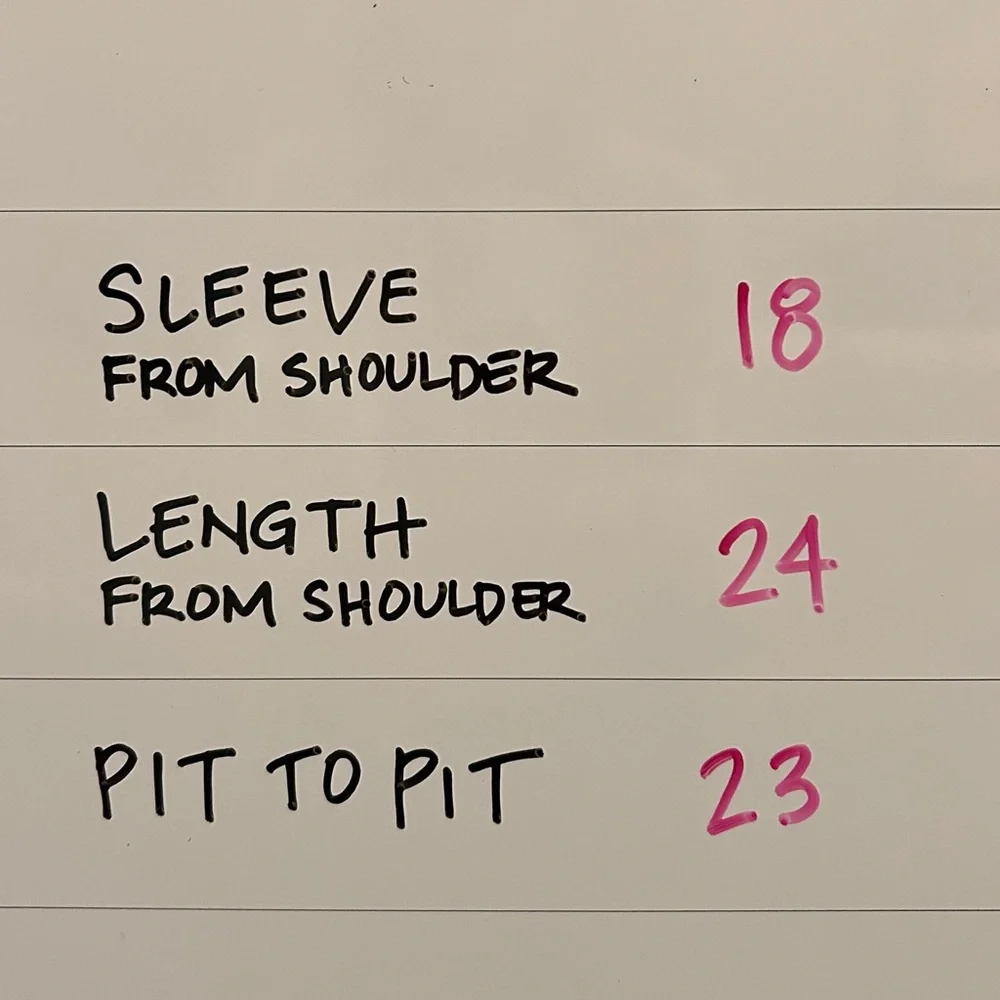 SLEEVE 18
FROM SHOULDER
LENGTH 24
FROM SHOULDER
PIT TO PIT 23